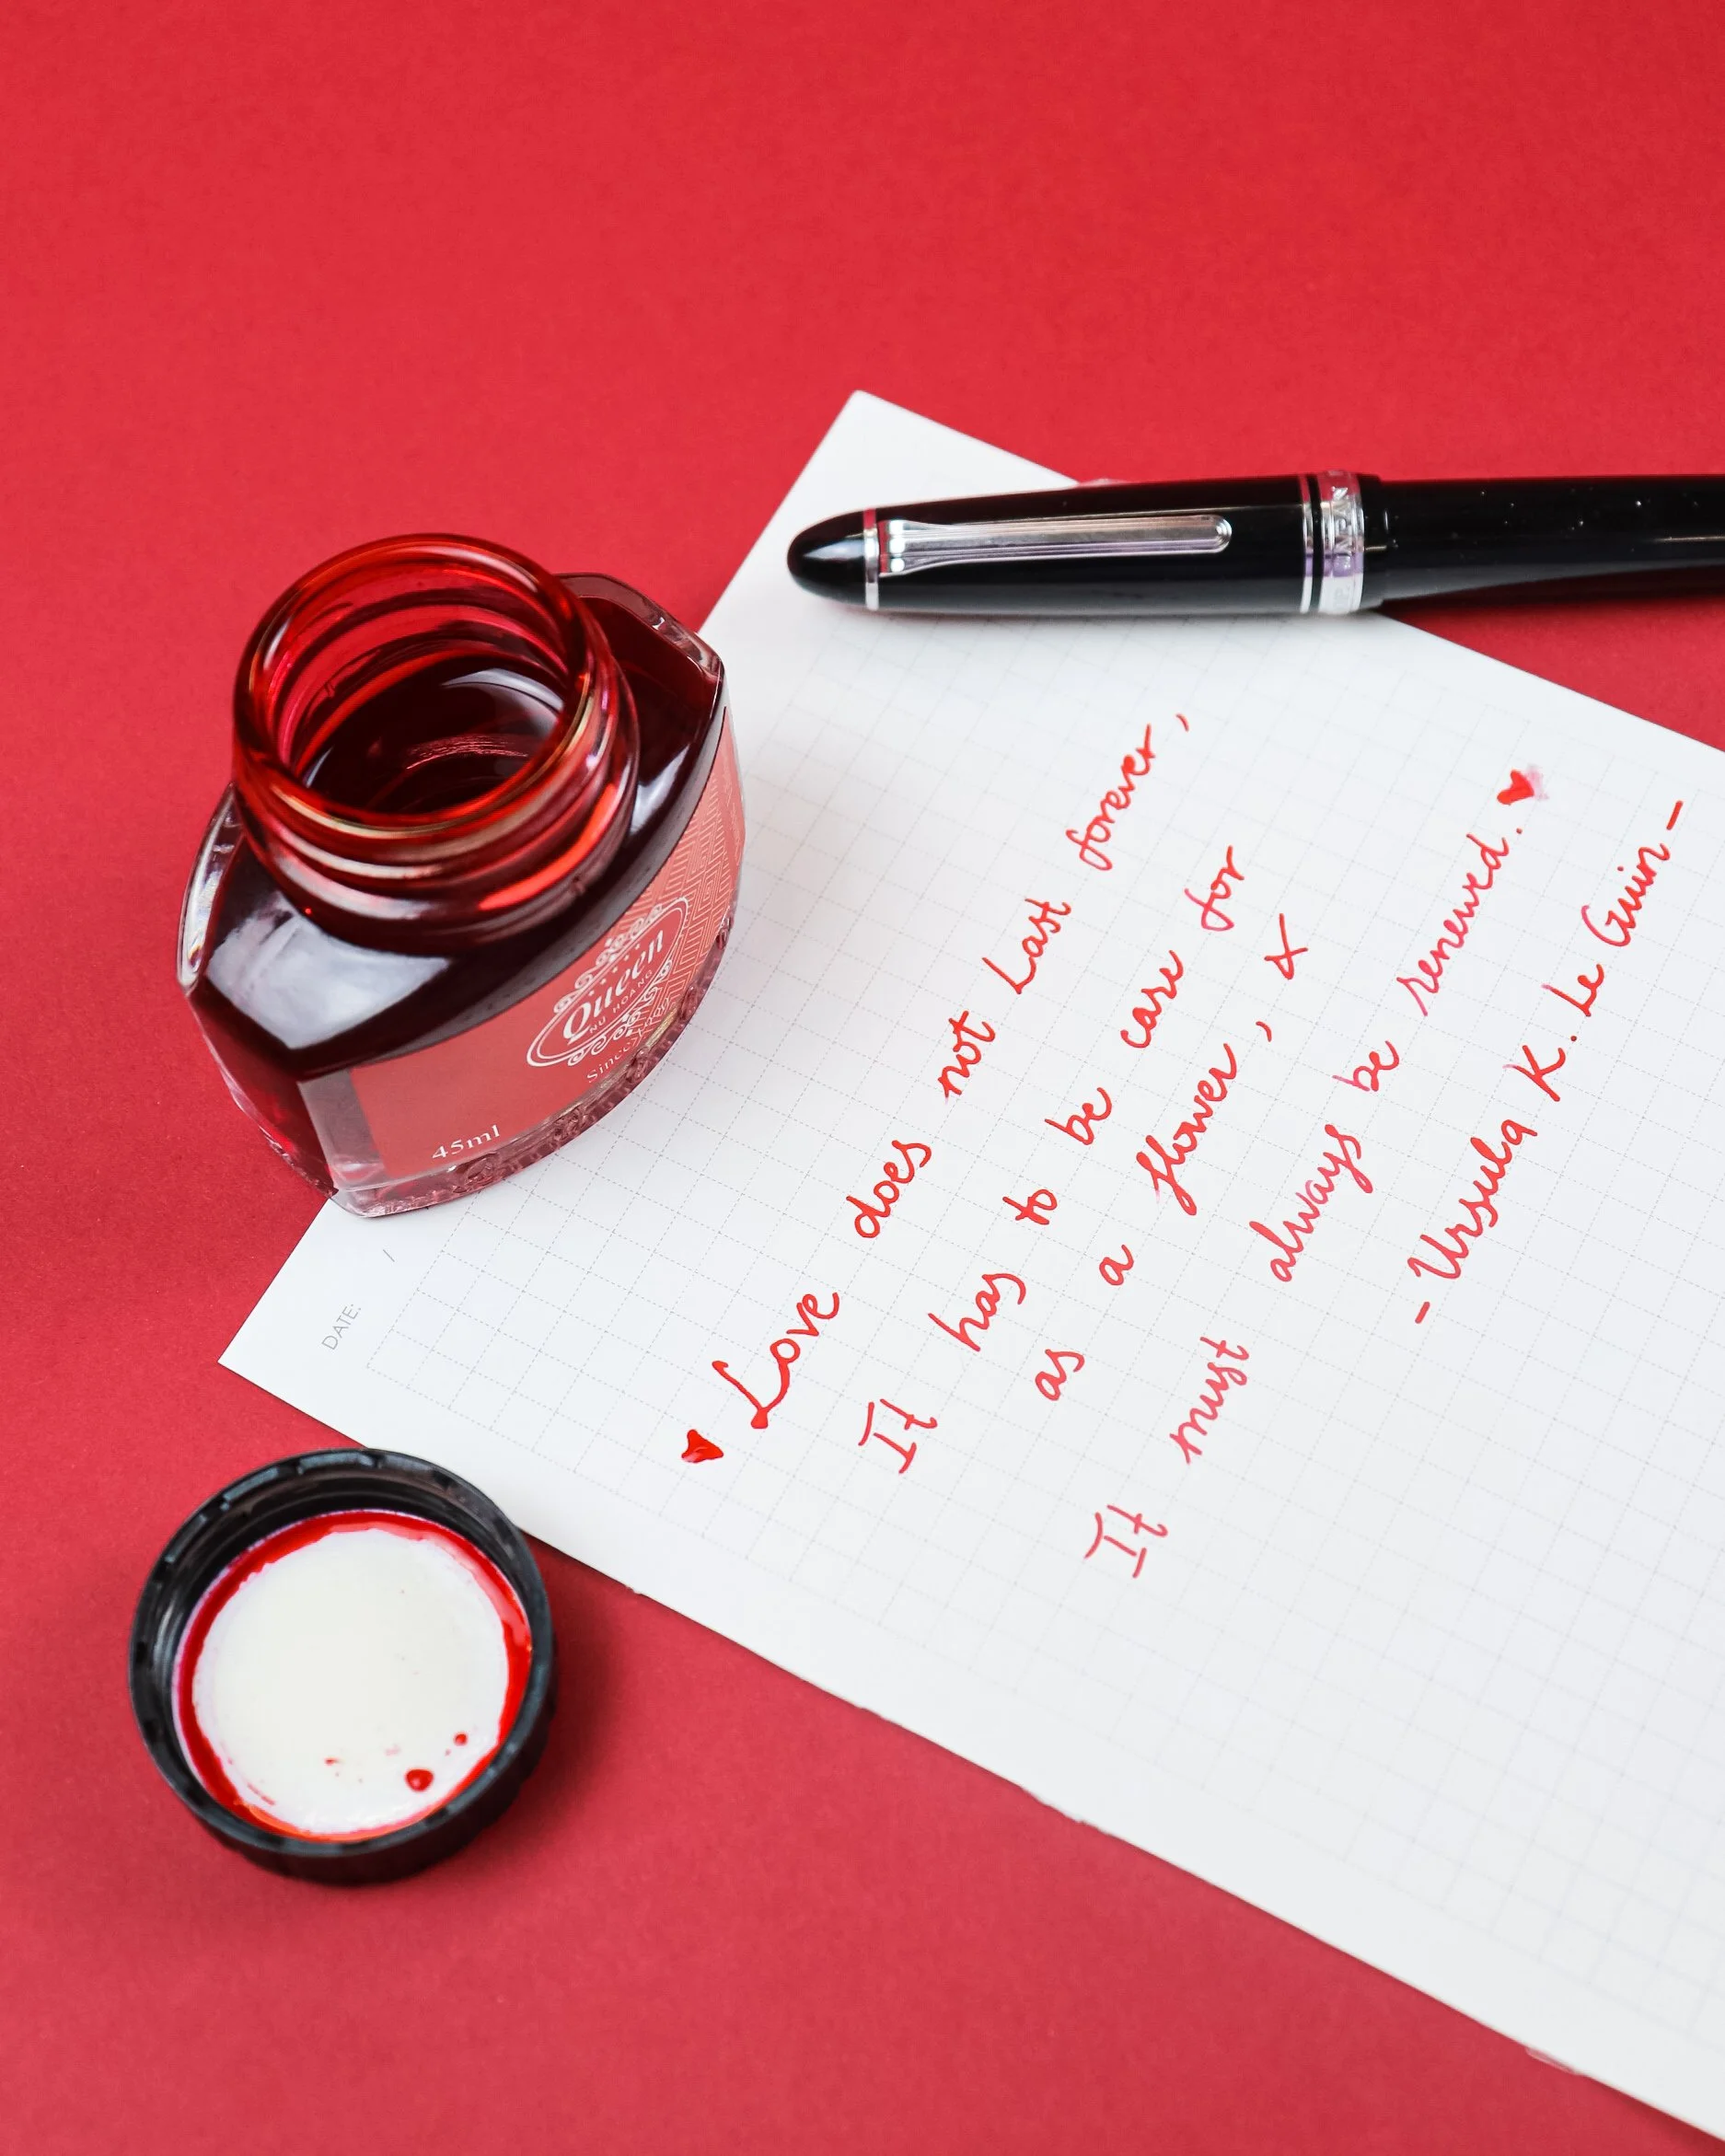 Love does not Last forever,
It has to be care for
as a flower, &
It must always be renewed.
- Ursula K. Le Guin -
DATE: /
Queen
NỮ HOÀNG
Since
45ml